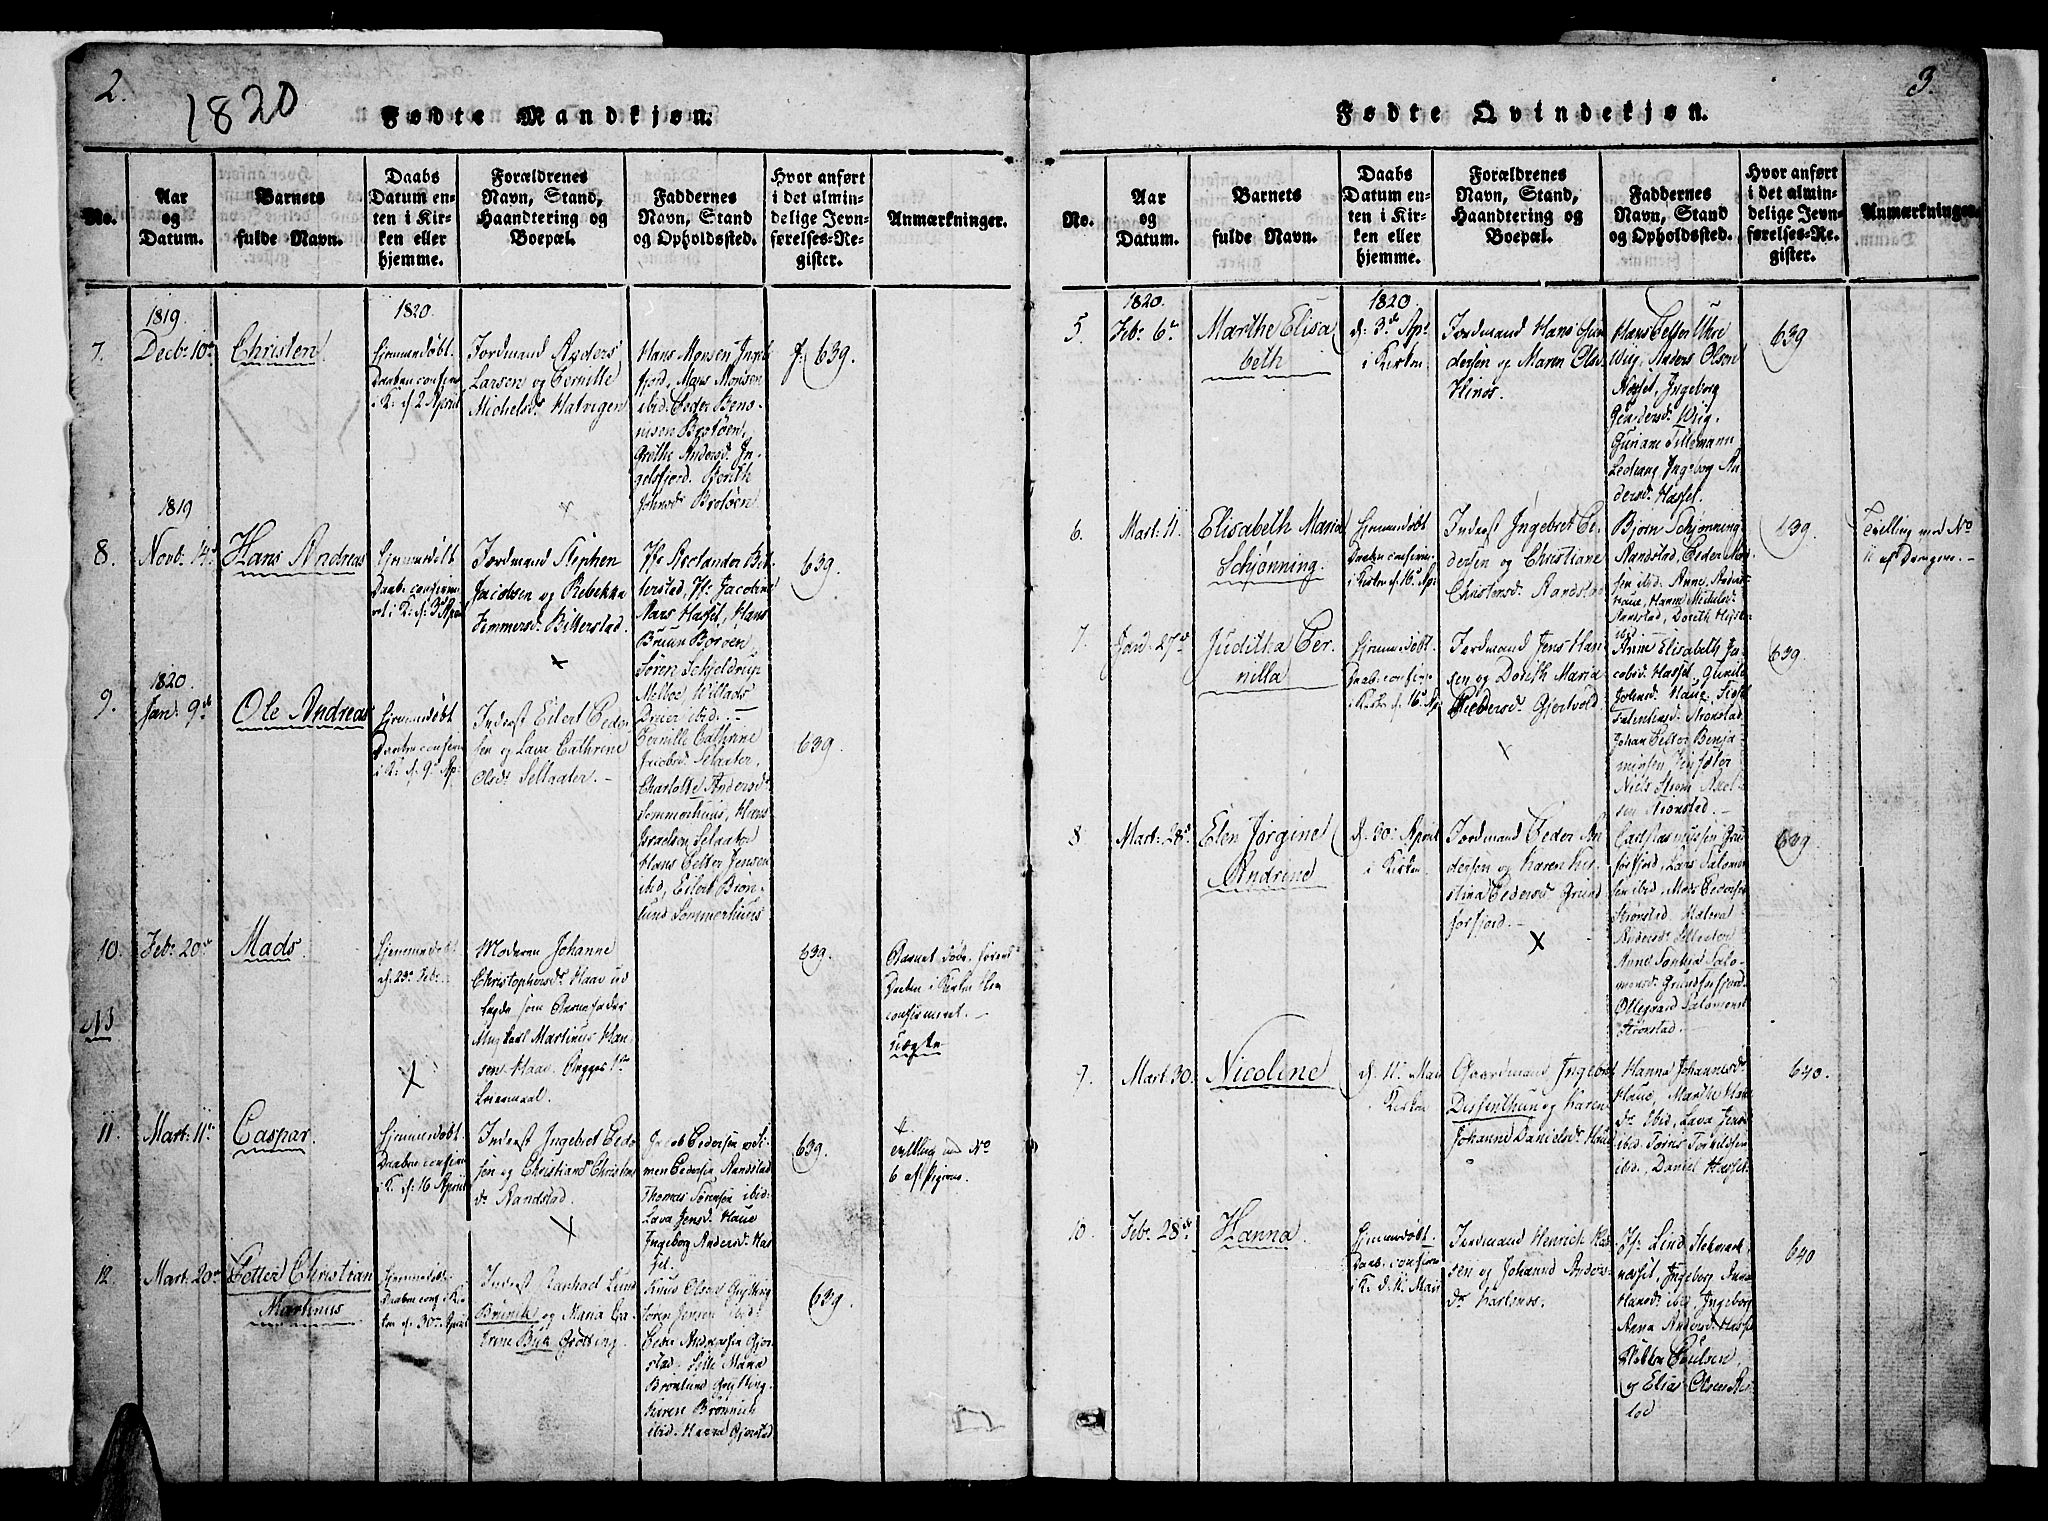 2.
1820
Fødte Mandkjøn.
No.
Aar
og
Datum.
Barnets
fulde Navn.
Daabs
Datum en-
ten i Kir-
ken eller
hjemme.
Forældrenes
Navn, Stand,
Haandtering og
Boepæl.
Faddernes
Navn, Stand
og Opholdssted.
Hvor anført
i det almin-
delige Jevn-
førelses-Re-
gister.
Anmærkninger.
7.
1819.
Decbr 10de
Christen
1820.
Hjemmedøbt
Daaben confirm
i K. d. 2 April
Jordmand Anders
Larsen og Pernille
Michelsdr Hatvigen
Hans Monsen Ingel
fjord, Mons Monsen
ibid. Peder Bens-
nisen Brotøen,
Grethe Andersdr In-
gelsfjord. Dorith
Johnsdr Brotøen
f. 639.
8.
1819
Novbr 14de
Hans Andreas
Hjemmedøbt
Daab. confirme-
ret i K. d. 3de April
Jordmand Stephen
Jacobsen og Rebekka
Bitterstad.
Bit-
terstad, Jfr Jacobine
Aars Hassel, Hans
Bruun Boeøen,
Søren Schjeldrup
Melboe, Willads
Dreier ibid.
639.
9.
1820.
Jan. 9de
Ole Andreas
Hjemmedøbt
Daaben confirm
i K. d. 9de Ap.
Inderst Eilert Peder
sen og Lava Cathrine
Olsdr Selaater.
Pernille Cathrine
Jacobsdr Selaater,
Charlotte Andersdr
Sommerhuus, Hans
Israelsen Selaater
Hans Petter Jensen
ibid, Eilert Brøn-
lund Sommerhuus
639.
10.
Febr 20de
Mads.
Hjemmedøbt
d. 23de Febr.
Moderen Johanne
Christophersdr Haae ud
lagde som Barnefader
Ungkarl Martinus Han
sen Haae. Begges 1ste
Leiermaal.
639.
Barnet døde førend
Daaben i Kirken blev
confirmeret.
Uægte
11.
Mart. 11te
Caspar.
Hjemmedøbt
Daaben confirm
i K. d. 16 April
Inderst Ingebret Peder
sen og Christiane Christens
dr Sandstad.
Jacob Pedersen og Si-
men Pedersen Sandstad
Thomas Sørensen ibid.
Lava Jensdr Haue
Ingeborg Andersdr Has
sel.
639.
Tvilling med No
6 af Pigerne.
12.
Mart. 20de
Petter Christian
Martinus
Hjemmedøbt
Daaben conf. i Kir
ken d. 30te April
Inderst Lund
Brinik og Maria Ca-
trine Grøtting.
Knud Olsen Grytting
Søren Jensen ibid.
Peder Andersen Gjer-
stad. Sille Maria
Brønlund Grytting.
Karen Brønnich
ibid. Maren Gjerstad
639.
3.
Fødte Qvindekjøn.
No.
Aar
og
Datum.
Barnets
fulde Navn.
Daabs
Datum en-
ten i Kir-
ken eller
hjemme.
Forældrenes
Navn, Stand,
Haandtering og
Boepæl.
Faddernes
Navn, Stand
og Opholdssted.
Hvor anført
i det almin-
delige Jevn-
førelses-Re-
gister.
Anmærkninger.
5.
1820.
Febr 6te
Marthe Elisa
beth
1820.
d. 3de Apr.
i Kirken
Jordmand Hans Gun
dersen og Maren Olsdr
Hinøs.
Hans Petter Uhre
Wiig, Anders Olsen
Nosset, Ingeborg
Gundersdr Wiig,
Guriane Tillemann
Ledvang Ingeborg An-
dersdr Hassel.
639
6.
Mart. 11.
Elisabeth Maria
Schjønning.
Hjemmedøbt
Daaben confirm.
i Kirken d. 16de Ap.
Inderst Ingebret Pe-
dersen og Christiane
Christensdr Sandstad
Bjørn Schjønning
Sandstad, Peder Mor-
sen ibid. Anne Andersdr
Haue, Hanna Michelsdr
Sandstad, Dorith
ibid
639.
Tvilling med No
11 af Drengene.
7.
Jan. 27de
Juditha Per-
nilla
Hjemmedøbt
Daab. confirm
i Kirken d. 16 Ap.
Jordmand Jens Han-
sen og Dorith Maria
Pedersdr Gjertvold.
Anne Elisabeth Ja-
cobsd. Hassel, Gunild
Johnsd. Haue,
Strønstad,
Johan Petter Benja-
minsen
Niels Strøm Axel-
sen Strønstad.
639.
8
Mart. 28de
Elen Jørgine
Andrine
d. 30te April
i Kirken
Jordmand Peder An-
dersen og Karen Kir-
stina Pedersdr Grund
forfjord.
Rasmussen Grun
forfjord, Lars Salomon
sen ibid, Mads Pedersen
Strønstad. Maleva
Andersdr Selaater
Anne Sophia Salo-
monsdr Grundforfjord
Ollegaard Salomons
Strønstad.
639.
9.
Mart. 30.
Nicoline
d. 11te Mai
i Kirken
Gaardmand Ingebret
Dessenthun og Karen
Johanne Danielsdr Haue
Hanna Johannesdr
Haue, Marthe Hans
dr ibid, Lava Jensdr
ibid Tørris Torrissen
ibid, Daniel Hassel.
640.
10.
Febr 28de
Hanna.
Hjemmedøbt.
Daab. confirm
i K. d. 11te Mai
Jordmand Henrich Han
sen og Johanna Anders
dr Karlsnes.
Jfr Lind Stokmark
næsset, Ingeborg Anna
Hansdr ibid, Ingeborg
Anna Andersdr Hassel
Poulsen,
og Elias Olsen
640